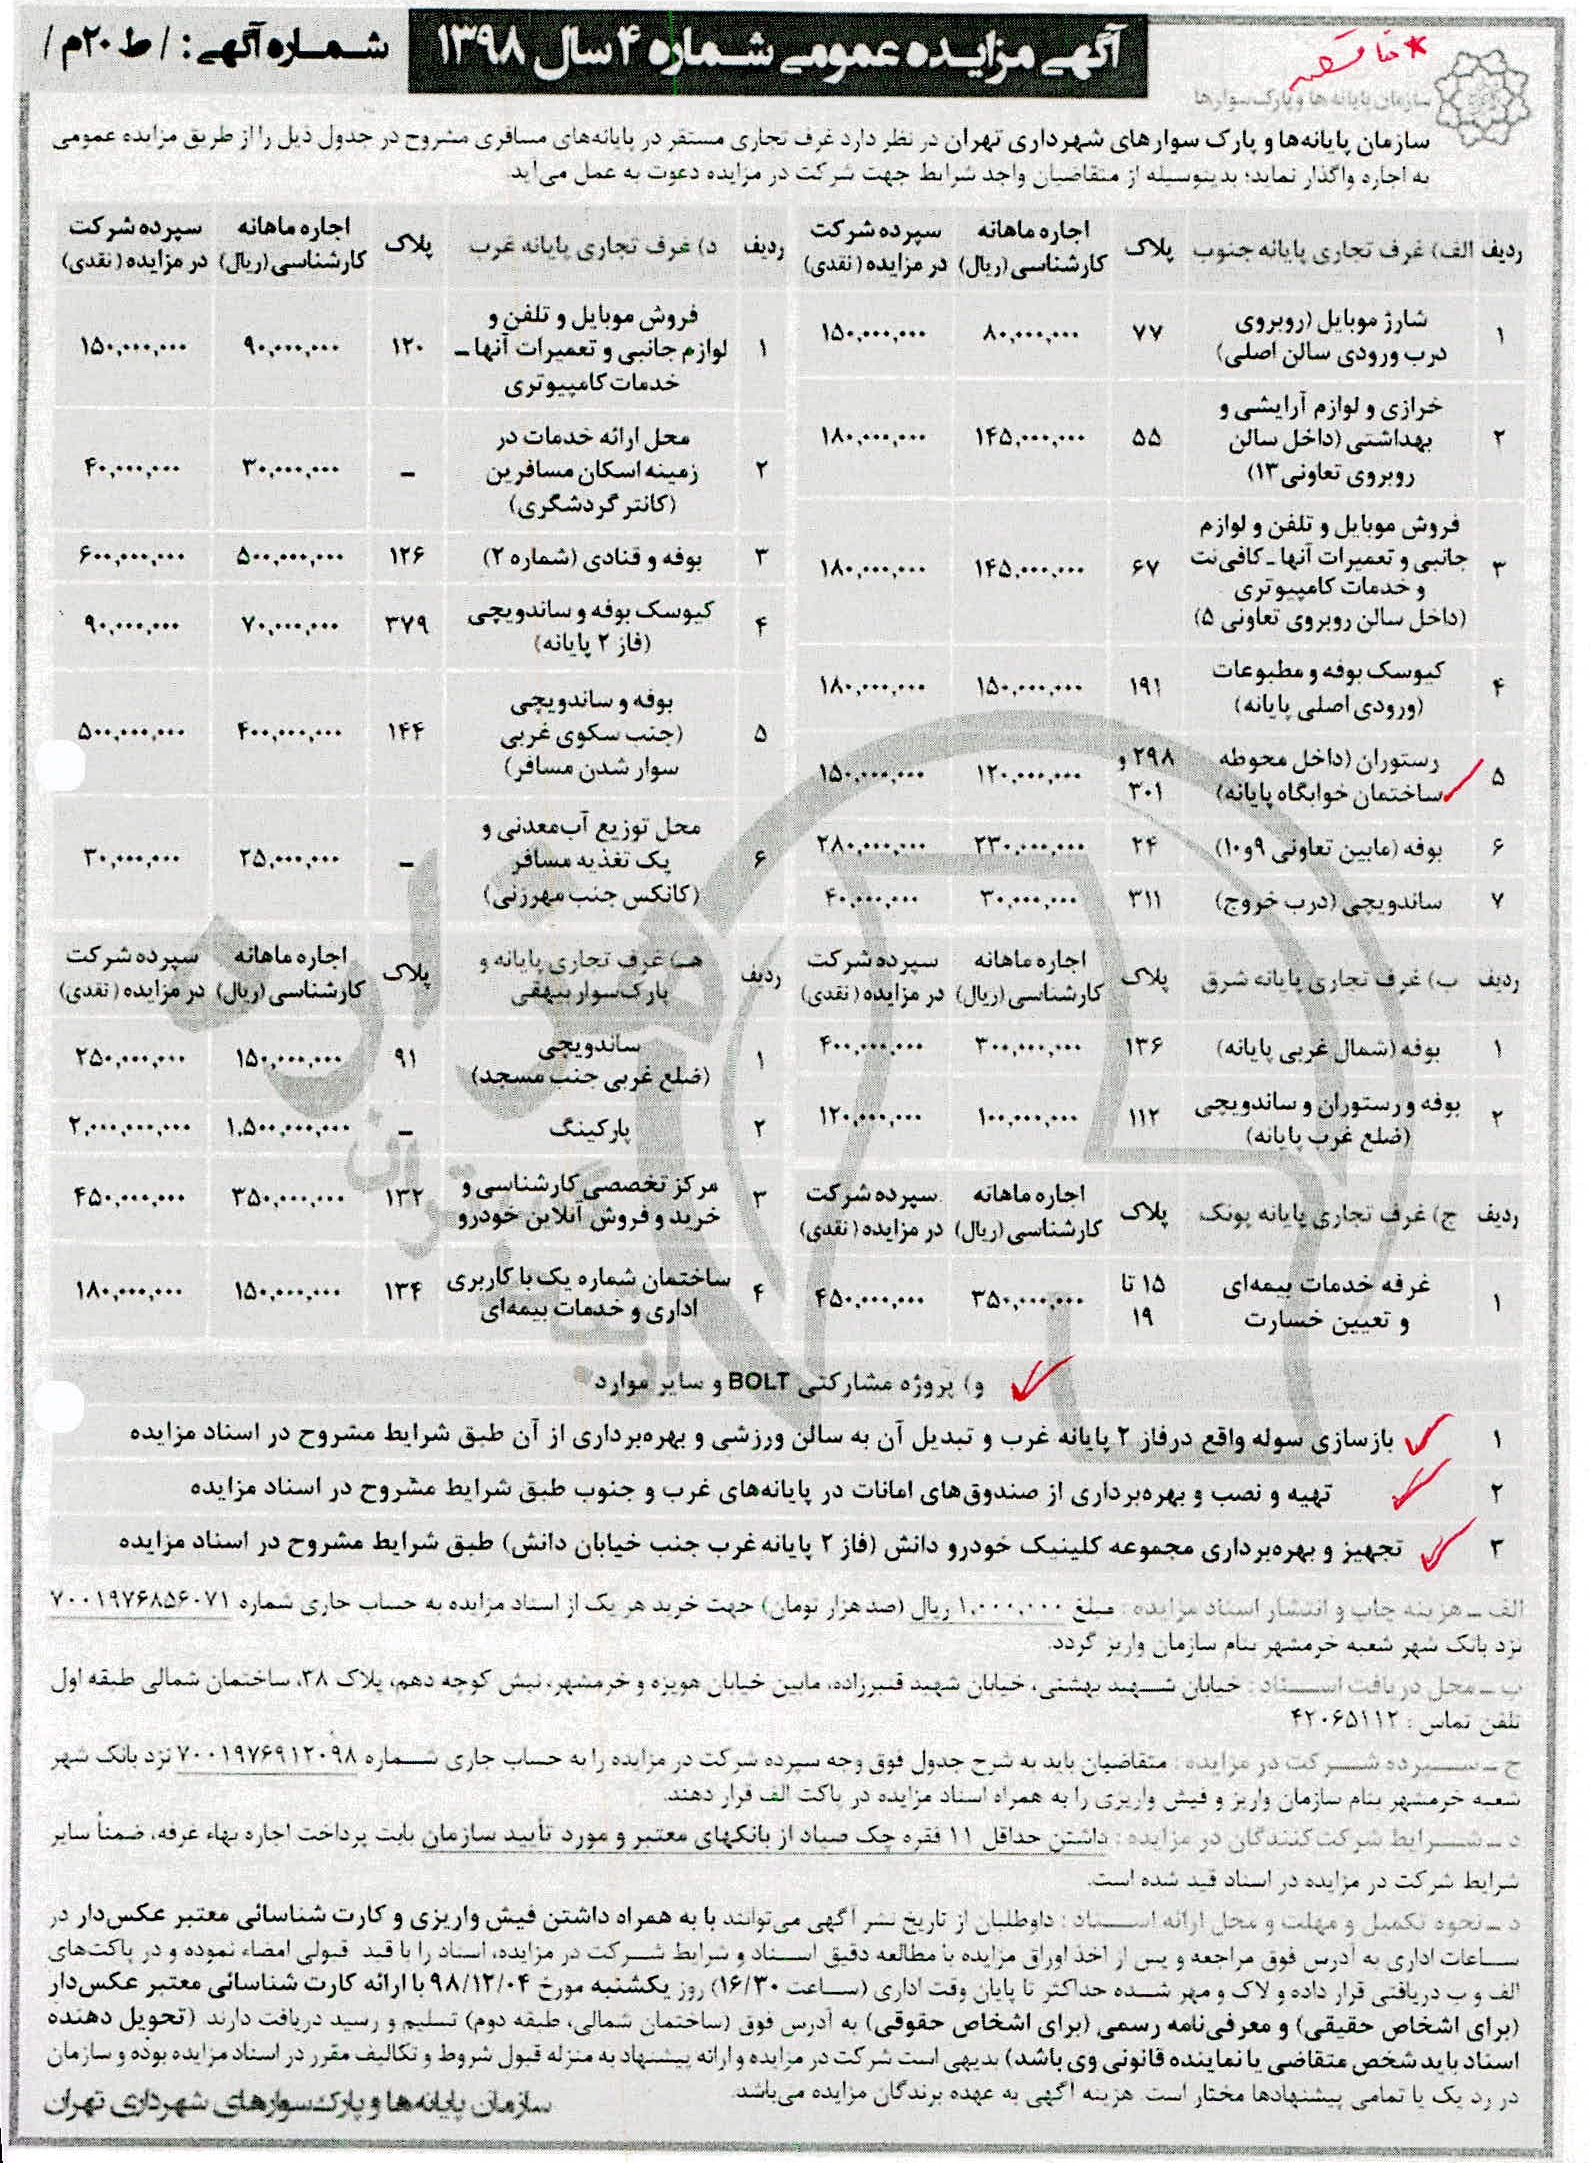 آگهی مزایده عمومی شماره ۴ سال ۱۳۹۸
شماره آگهی: / ط ۲۰م /
سازمان پایانه‌ها و پارک سوارها
سازمان پایانه‌ها و پارک سوارهای شهرداری تهران در نظر دارد غرف تجاری مستقر در پایانه‌های مسافری مشروح در جدول ذیل را از طریق مزایده عمومی
به اجاره واگذار نماید؛ بدینوسیله از متقاضیان واجد شرایط جهت شرکت در مزایده دعوت به عمل می‌آید.
ردیف الف) غرف تجاری پایانه جنوب پلاک اجاره ماهانه کارشناسی (ریال) سپرده شرکت در مزایده (نقدی)
۱ شارژ موبایل (روبروی درب ورودی سالن اصلی) ۷۷ ۸۰,۰۰۰,۰۰۰ ۱۵۰,۰۰۰,۰۰۰
۲ خرازی و لوازم آرایشی و بهداشتی (داخل سالن روبروی تعاونی ۱۳) ۵۵ ۱۴۵,۰۰۰,۰۰۰ ۱۸۰,۰۰۰,۰۰۰
۳ فروش موبایل و تلفن و لوازم جانبی و تعمیرات آنها ـ کافی‌نت و خدمات کامپیوتری (داخل سالن روبروی تعاونی ۵) ۶۷ ۱۴۵,۰۰۰,۰۰۰ ۱۸۰,۰۰۰,۰۰۰
۴ کیوسک بوفه و مطبوعات (ورودی اصلی پایانه) ۱۹۱ ۱۵۰,۰۰۰,۰۰۰ ۱۸۰,۰۰۰,۰۰۰
۵ رستوران (داخل محوطه ساختمان خوابگاه پایانه) ۲۹۸ و ۳۰۱ ۱۲۰,۰۰۰,۰۰۰ ۱۵۰,۰۰۰,۰۰۰
۶ بوفه (مابین تعاونی ۹و۱۰) ۲۴ ۲۳۰,۰۰۰,۰۰۰ ۲۸۰,۰۰۰,۰۰۰
۷ ساندویچی (درب خروج) ۳۱۱ ۳۰,۰۰۰,۰۰۰ ۴۰,۰۰۰,۰۰۰
ردیف ب) غرف تجاری پایانه شرق پلاک اجاره ماهانه کارشناسی (ریال) سپرده شرکت در مزایده (نقدی)
۱ بوفه (شمال غربی پایانه) ۱۳۶ ۳۰۰,۰۰۰,۰۰۰ ۴۰۰,۰۰۰,۰۰۰
۲ بوفه و رستوران و ساندویچی (ضلع غرب پایانه) ۱۱۲ ۱۰۰,۰۰۰,۰۰۰ ۱۲۰,۰۰۰,۰۰۰
ردیف ج) غرف تجاری پایانه پونک پلاک اجاره ماهانه کارشناسی (ریال) سپرده شرکت در مزایده (نقدی)
۱ غرفه خدمات بیمه‌ای و تعیین خسارت ۱۵ تا ۱۹ ۳۵۰,۰۰۰,۰۰۰ ۴۵۰,۰۰۰,۰۰۰
ردیف د) غرف تجاری پایانه غرب پلاک اجاره ماهانه کارشناسی (ریال) سپرده شرکت در مزایده (نقدی)
۱ فروش موبایل و تلفن و لوازم جانبی و تعمیرات آنها ـ خدمات کامپیوتری ۱۲۰ ۹۰,۰۰۰,۰۰۰ ۱۵۰,۰۰۰,۰۰۰
۲ محل ارائه خدمات در زمینه اسکان مسافرین (کانتر گردشگری) ـ ۳۰,۰۰۰,۰۰۰ ۴۰,۰۰۰,۰۰۰
۳ بوفه و قنادی (شماره ۲) ۱۲۶ ۵۰۰,۰۰۰,۰۰۰ ۶۰۰,۰۰۰,۰۰۰
۴ کیوسک بوفه و ساندویچی (فاز ۲ پایانه) ۳۷۹ ۷۰,۰۰۰,۰۰۰ ۹۰,۰۰۰,۰۰۰
۵ بوفه و ساندویچی (جنب سکوی غربی سوار شدن مسافر) ۱۴۴ ۴۰۰,۰۰۰,۰۰۰ ۵۰۰,۰۰۰,۰۰۰
۶ محل توزیع آب‌معدنی و پک تغذیه مسافر (کانکس جنب مهرزنی) ـ ۲۵,۰۰۰,۰۰۰ ۳۰,۰۰۰,۰۰۰
ردیف هـ) غرف تجاری پایانه و پارک‌سوار بیهقی پلاک اجاره ماهانه کارشناسی (ریال) سپرده شرکت در مزایده (نقدی)
۱ ساندویچی (ضلع غربی جنب مسجد) ۹۱ ۱۵۰,۰۰۰,۰۰۰ ۲۵۰,۰۰۰,۰۰۰
۲ پارکینگ ـ ۱,۵۰۰,۰۰۰,۰۰۰ ۲,۰۰۰,۰۰۰,۰۰۰
۳ مرکز تخصصی کارشناسی و خرید و فروش آنلاین خودرو ۱۳۲ ۳۵۰,۰۰۰,۰۰۰ ۴۵۰,۰۰۰,۰۰۰
۴ ساختمان شماره یک با کاربری اداری و خدمات بیمه‌ای ۱۳۴ ۱۵۰,۰۰۰,۰۰۰ ۱۸۰,۰۰۰,۰۰۰
و) پروژه مشارکتی BOLT و سایر موارد
۱ بازسازی سوله واقع در فاز ۲ پایانه غرب و تبدیل آن به سالن ورزشی و بهره‌برداری از آن طبق شرایط مشروح در اسناد مزایده
۲ تهیه و نصب و بهره‌برداری از صندوق‌های امانات در پایانه‌های غرب و جنوب طبق شرایط مشروح در اسناد مزایده
۳ تجهیز و بهره‌برداری مجموعه کلینیک خودرو دانش (فاز ۲ پایانه غرب جنب خیابان دانش) طبق شرایط مشروح در اسناد مزایده
الف ـ هزینه چاپ و انتشار اسناد مزایده : مبلغ ۱,۰۰۰,۰۰۰ ریال (صد هزار تومان) جهت خرید هر یک از اسناد مزایده به حساب جاری شماره ۷۰۰۱۹۷۶۸۵۶۰۷۱
نزد بانک شهر شعبه خرمشهر بنام سازمان واریز گردد.
ب ـ محل دریافت اسناد : خیابان شهید بهشتی، خیابان شهید قنبرزاده، مابین خیابان هویزه و خرمشهر، نبش کوچه دهم، پلاک ۳۸، ساختمان شمالی طبقه اول
تلفن تماس : ۴۲۰۶۵۱۱۲
ج ـ سپرده شرکت در مزایده : متقاضیان باید به شرح جدول فوق وجه سپرده شرکت در مزایده را به حساب جاری شماره ۷۰۰۱۹۷۶۹۱۲۰۹۸ نزد بانک شهر
شعبه خرمشهر بنام سازمان واریز و فیش واریزی را به همراه اسناد مزایده در پاکت الف قرار دهند.
د ـ شرایط شرکت‌کنندگان در مزایده : داشتن حداقل ۱۱ فقره چک صیاد از بانکهای معتبر و مورد تأیید سازمان بابت پرداخت اجاره بهاء غرفه، ضمناً سایر
شرایط شرکت در مزایده در اسناد قید شده است.
د ـ نحوه تکمیل و مهلت و محل ارائه اسناد : داوطلبان از تاریخ نشر آگهی می‌توانند با به همراه داشتن فیش واریزی و کارت شناسائی معتبر عکس‌دار در
ساعات اداری به آدرس فوق مراجعه و پس از اخذ اوراق مزایده با مطالعه دقیق اسناد و شرایط شرکت در مزایده، اسناد را با قید قبولی امضاء نموده و در پاکت‌های
الف و ب دریافتی قرار داده و لاک و مهر شده حداکثر تا پایان وقت اداری (ساعت ۱۶/۳۰) روز یکشنبه مورخ ۹۸/۱۲/۰۴ با ارائه کارت شناسائی معتبر عکس‌دار
(برای اشخاص حقیقی) و معرفی‌نامه رسمی (برای اشخاص حقوقی) به آدرس فوق (ساختمان شمالی، طبقه دوم) تسلیم و رسید دریافت دارند (تحویل دهنده
اسناد باید شخص متقاضی یا نماینده قانونی وی باشد) بدیهی است شرکت در مزایده و ارائه پیشنهاد به منزله قبول شروط و تکالیف مقرر در اسناد مزایده بوده و سازمان
در رد یک یا تمامی پیشنهادها مختار است. هزینه آگهی به عهده برندگان مزایده می‌باشد.
سازمان پایانه‌ها و پارک‌سوارهای شهرداری تهران